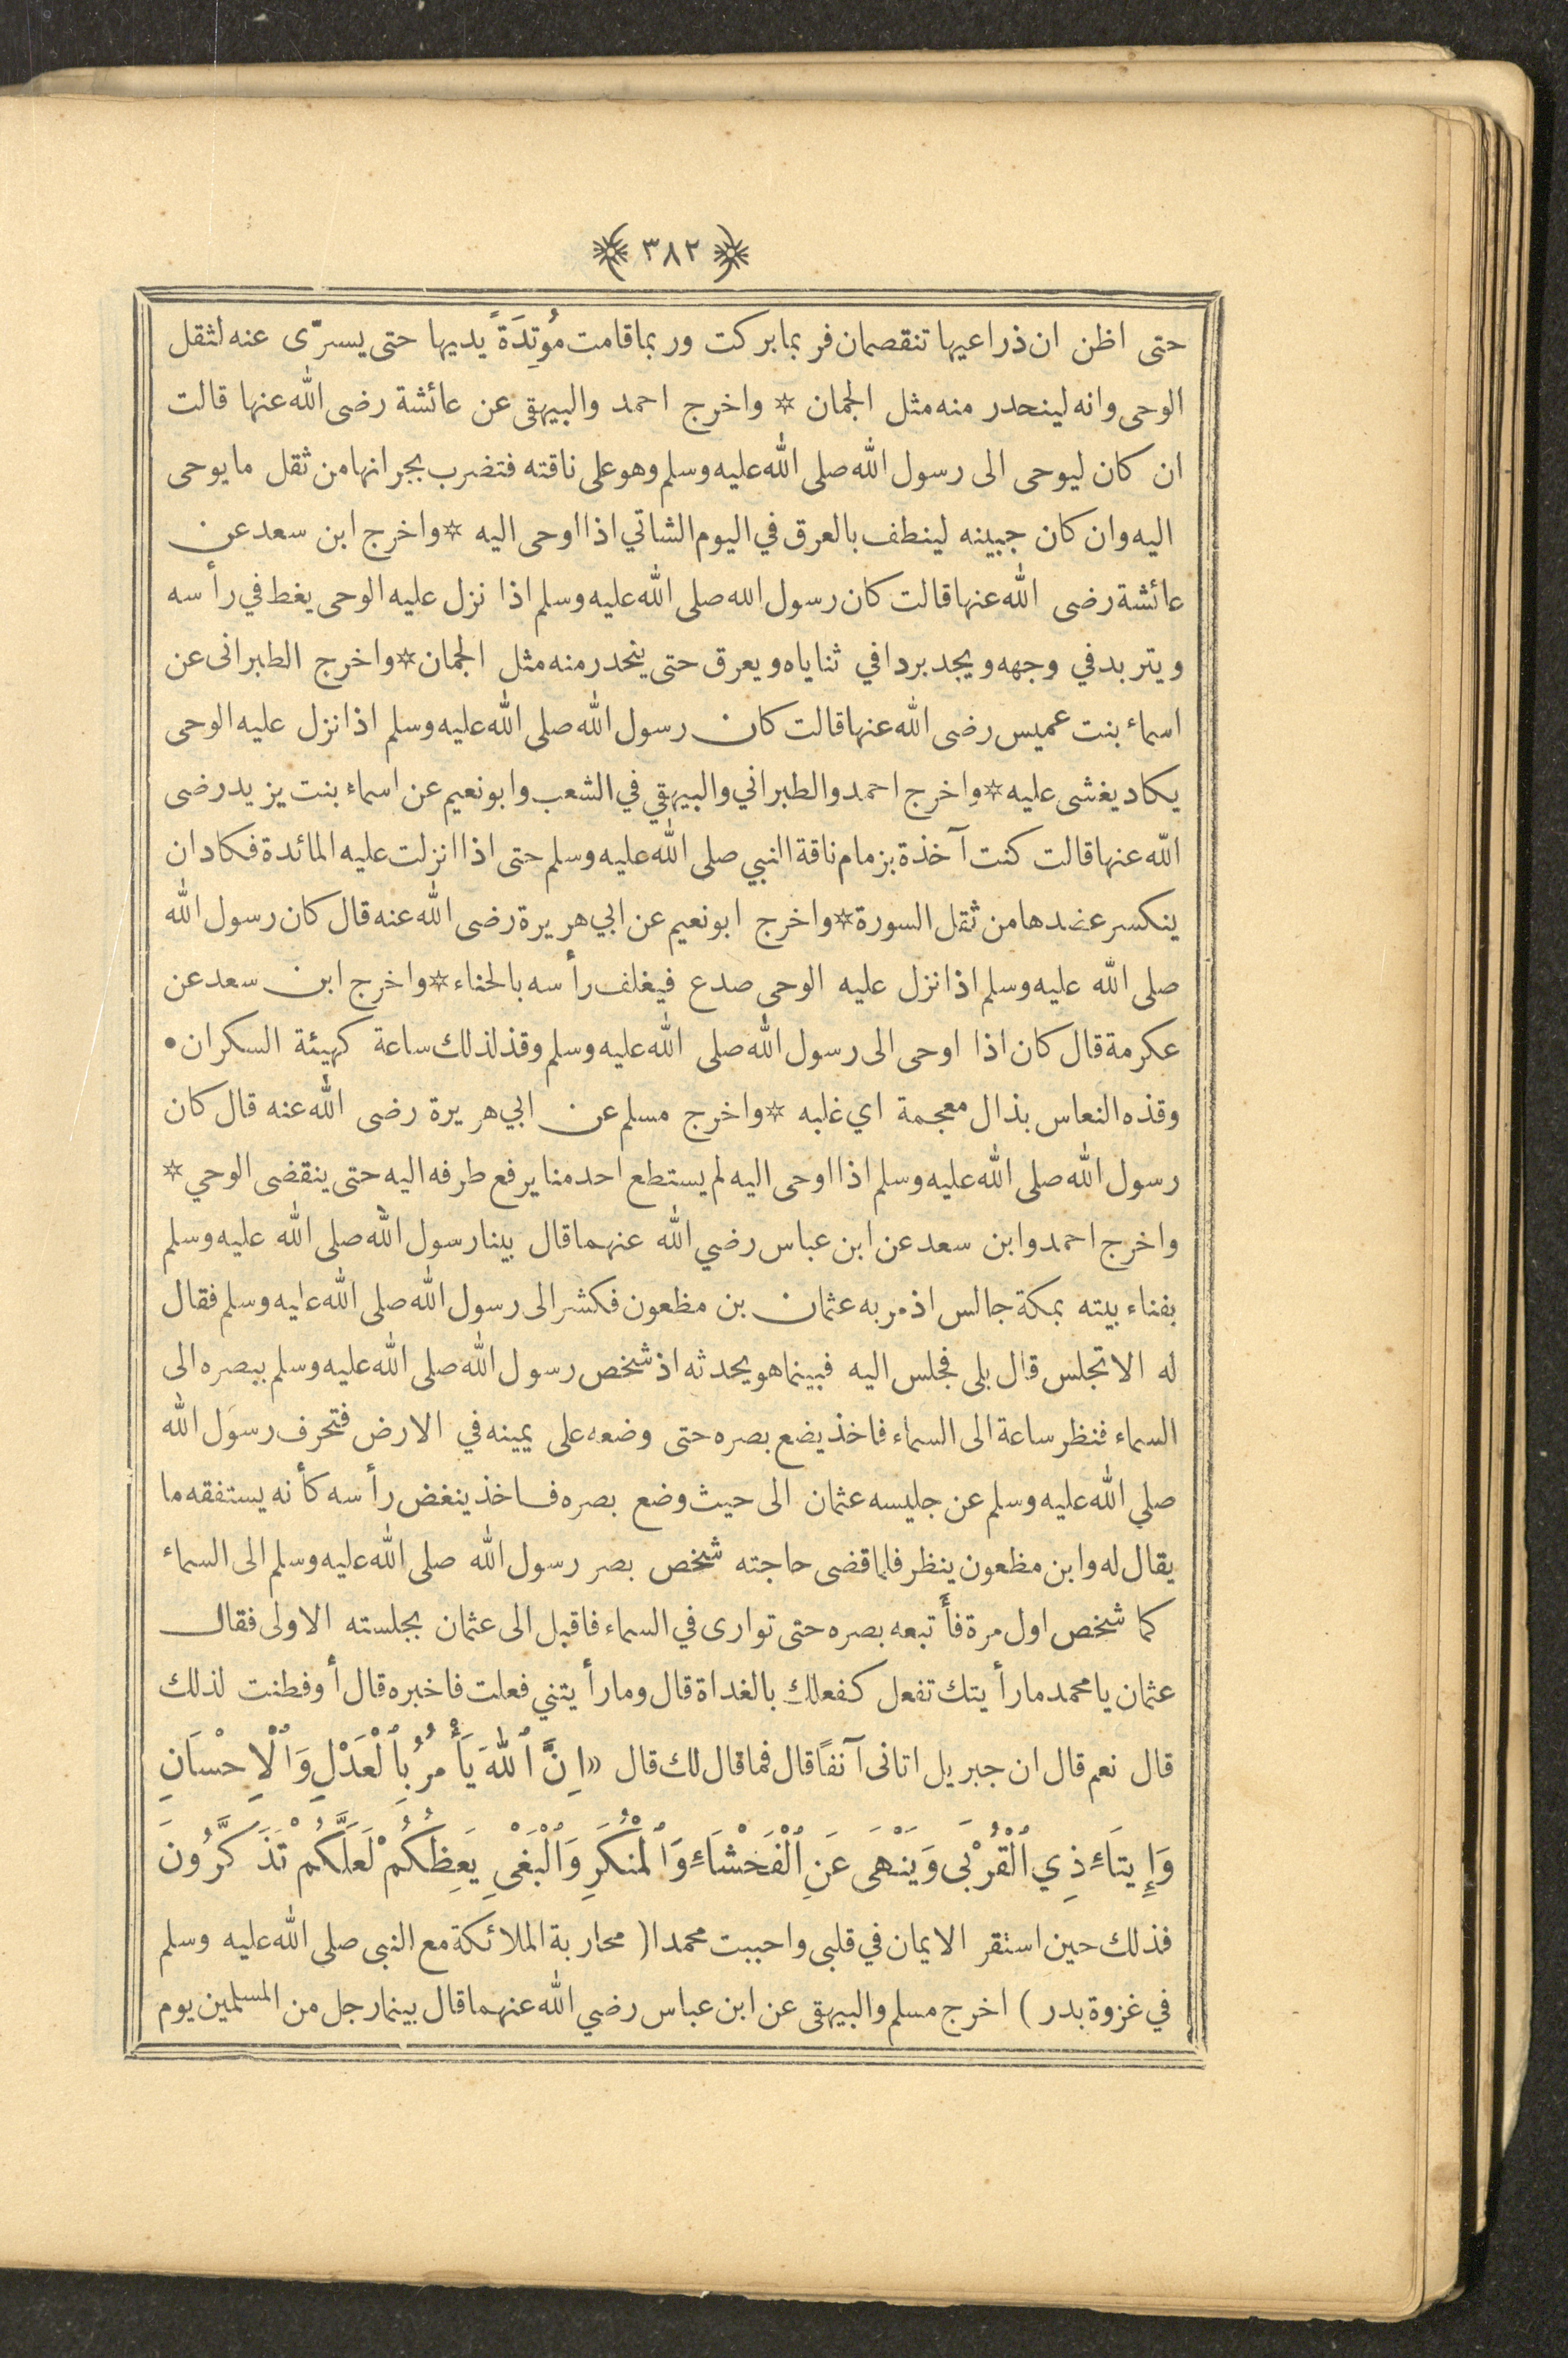 ٣٨٢
حتى اظن ان ذراعيها تنقصمان فربما بركت وربما قامت مُوتِدَةً يديها حتى يسرّى عنه لثقل
الوحى وانه لينحدر منه مثل الجمان * واخرج احمد والبيهقى عن عائشة رضى الله عنها قالت
ان كان ليوحى الى رسول الله صلى الله عليه وسلم وهو على ناقته فتضرب بجرانها من ثقل ما يوحى
اليه وان كان جبينه لينطف بالعرق في اليوم الشاتي اذا اوحى اليه * واخرج ابن سعد عن
عائشة رضى الله عنها قالت كان رسول الله صلى الله عليه وسلم اذا نزل عليه الوحى يغط في رأسه
ويتربد في وجهه ويجد بردا في ثناياه ويعرق حتى ينحدر منه مثل الجمان * واخرج الطبرانى عن
اسماء بنت عميس رضى الله عنها قالت كان رسول الله صلى الله عليه وسلم اذا نزل عليه الوحى
يكاد يغشى عليه * واخرج احمد والطبراني والبيهقي في الشعب وابو نعيم عن اسماء بنت يزيد رضى
الله عنها قالت كنت آخذة بزمام ناقة النبي صلى الله عليه وسلم حتى اذا انزلت عليه المائدة فكاد ان
ينكسر عضدها من ثقل السورة * واخرج ابو نعيم عن ابي هريرة رضى الله عنه قال كان رسول الله
صلى الله عليه وسلم اذا نزل عليه الوحى صدع فيغلف رأسه بالحناء * واخرج ابن سعد عن
عكرمة قال كان اذا اوحى الى رسول الله صلى الله عليه وسلم وقذ لذلك ساعة كهيئة السكران •
وقذه النعاس بذال معجمة اي غلبه * واخرج مسلم عن ابي هريرة رضى الله عنه قال كان
رسول الله صلى الله عليه وسلم اذا اوحى اليه لم يستطع احد منا يرفع طرفه اليه حتى ينقضى الوحي *
واخرج احمد وابن سعد عن ابن عباس رضي الله عنهما قال بينا رسول الله صلى الله عليه وسلم
بفناء بيته بمكة جالس اذ مر به عثمان بن مظعون فكشر الى رسول الله صلى الله عليه وسلم فقال
له الا تجلس قال بلى فجلس اليه فبينما هو يحدثه اذ شخص رسول الله صلى الله عليه وسلم ببصره الى
السماء فنظر ساعة الى السماء فاخذ يضع بصره حتى وضعه على يمينه في الارض فتحرف رسول الله
صلي الله عليه وسلم عن جليسه عثمان الى حيث وضع بصره فاخذ ينغض رأسه كأنه يستفقه ما
يقال له وابن مظعون ينظر فلما قضى حاجته شخص بصر رسول الله صلى الله عليه وسلم الى السماء
كما شخص اول مرة فأتبعه بصره حتى توارى في السماء فاقبل الى عثمان بجلسته الاولى فقال
عثمان يا محمد ما رأيتك تفعل كفعلك بالغداة قال وما رأيتني فعلت فاخبره قال أوفطنت لذلك
قال نعم قال ان جبريل اتانى آنفًا قال فما قال لك قال «اِنَّ ٱللهَ يَأْمُرُ بِٱلْعَدْلِ وَٱلْاِحْسَانِ
وَإِيتَاءِ ذِي ٱلْقُرْبَى وَيَنْهَى عَنِ ٱلْفَحْشَاءِ وَٱلْمُنْكَرِ وَٱلْبَغْىِ يَعِظُكُمْ لَعَلَّكُمْ تَذَكَّرُونَ
فذلك حين استقر الايمان في قلبى واحببت محمدا (محاربة الملائكة مع النبى صلى الله عليه وسلم
في غزوة بدر) اخرج مسلم والبيهقى عن ابن عباس رضي الله عنهما قال بينما رجل من المسلمين يوم